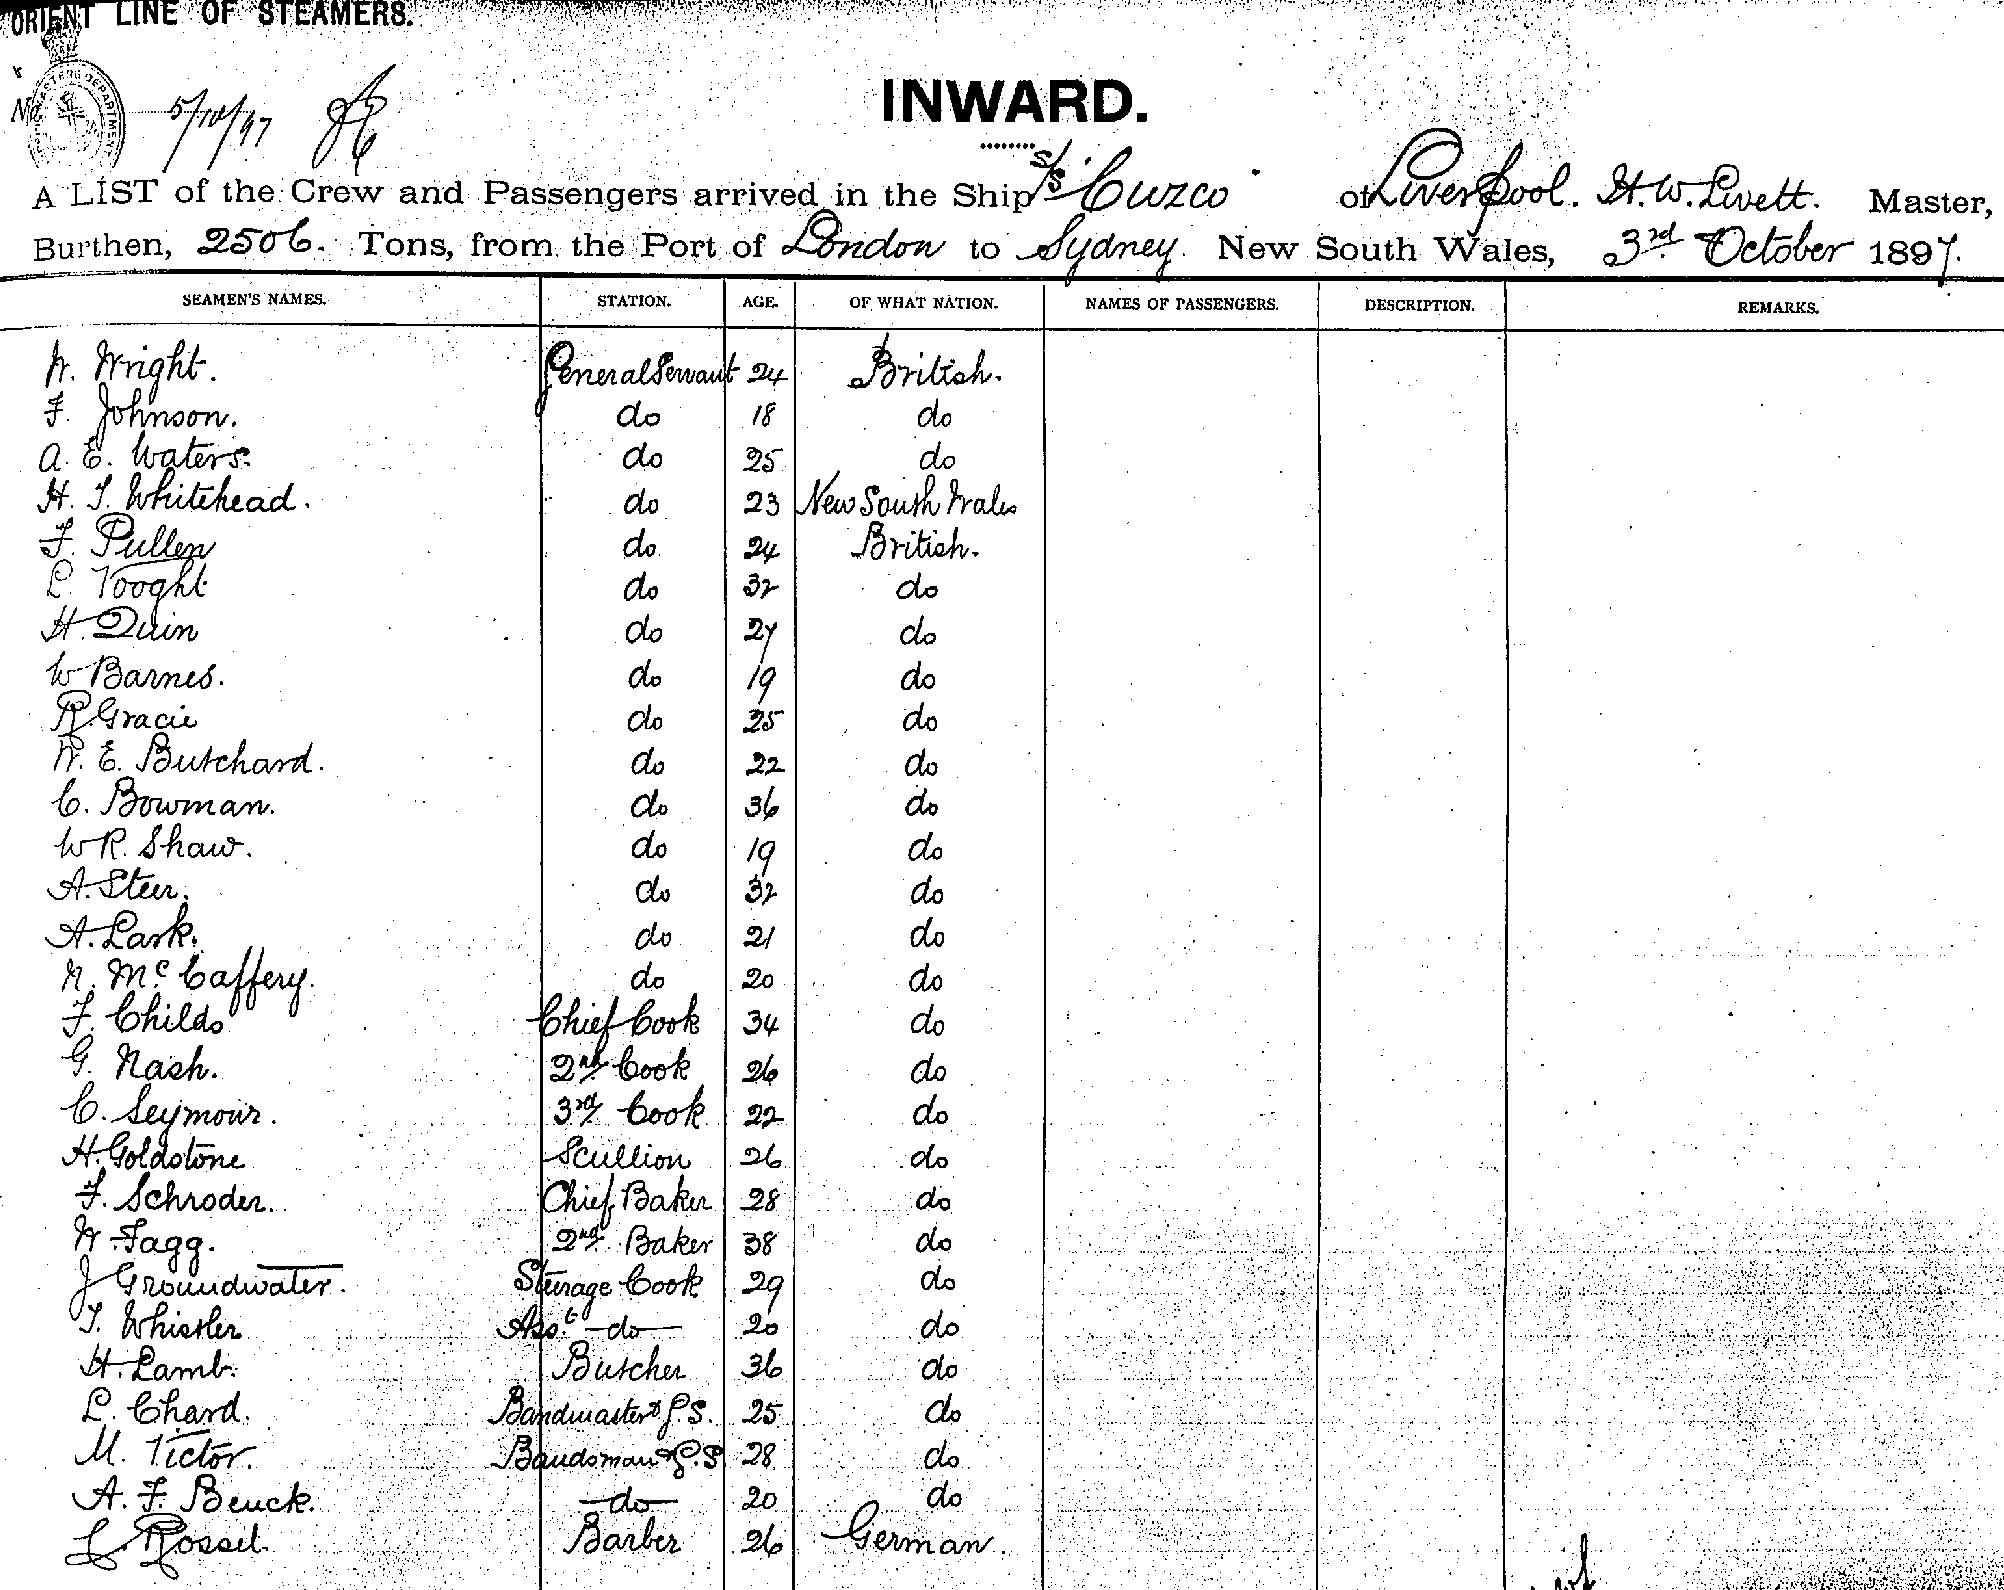 ORIENT LINE OF STEAMERS.
No 5/10/97
INWARD.
A LIST of the Crew and Passengers arrived in the Ship S/S Cuzco of Liverpool. H. W. Livett. Master,
Burthen, 2506. Tons, from the Port of London to Sydney. New South Wales, 3rd October 1897.
SEAMEN'S NAMES. STATION. AGE. OF WHAT NATION. NAMES OF PASSENGERS. DESCRIPTION. REMARKS.
W. Wright. General Servant 24 British.
F. Johnson. do 18 do
A. E. Waters. do 25 do
H. T. Whitehead. do 23 New South Wales
F. Pullen do 24 British.
L. Vooght do 32 do
H. Quin do 27 do
W Barnes. do 19 do
R Gracie do 25 do
W. E. Butchard. do 22 do
C. Bowman. do 36 do
W R. Shaw. do 19 do
A. Steer. do 32 do
A. Lark. do 21 do
N. McCaffery. do 20 do
F. Childs Chief Cook 34 do
G. Nash. 2nd Cook 26 do
C. Seymour. 3rd Cook 22 do
H. Goldstone Scullion 26 do
F. Schroder. Chief Baker 28 do
W. Fagg. 2nd Baker 38 do
J Groundwater. Steerage Cook 29 do
T. Whistler Asst do 20 do
H. Lamb. Butcher 36 do
L. Chard. Bandmaster & G.S. 25 do
M. Victor. Bandsman & G.S 28 do
A. F. Beuck. do 20 do
L. Rossel Barber 26 German.